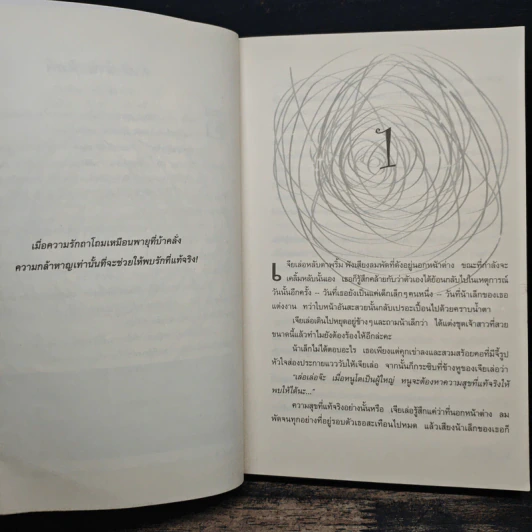 เมื่อความรักถาโถมเหมือนพายุที่บ้าคลั่ง
ความกล้าหาญเท่านั้นที่จะช่วยให้พบรักที่แท้จริง!
1
เจียเล่อหลับตาพริ้ม ฟังเสียงลมพัดที่ดังอยู่นอกหน้าต่าง ขณะที่กำลังจะ
เคลิ้มหลับนั้นเอง เธอก็รู้สึกคล้ายกับว่าตัวเองได้ย้อนกลับไปในเหตุการณ์
วันนั้นอีกครั้ง – วันที่เธอยังเป็นแค่เด็กเล็กๆ คนหนึ่ง – วันที่น้าเล็กของเธอ
แต่งงาน ทว่าใบหน้าอันสะสวยนั้นกลับเปรอะเปื้อนไปด้วยคราบน้ำตา
เจียเล่อเดินไปหยุดอยู่ข้างๆ และถามน้าเล็กว่า ได้แต่งชุดเจ้าสาวที่สวย
ขนาดนี้แล้วทำไมยังต้องร้องไห้อีกล่ะคะ
น้าเล็กไม่ได้ตอบอะไร เธอเพียงแค่คุกเข่าลงและสวมสร้อยคอที่มีจี้รูป
หัวใจส่องประกายแวววับให้เจียเล่อ จากนั้นก็กระซิบที่ข้างหูของเจียเล่อว่า
"เล่อเล่อจ๊ะ เมื่อหนูโตเป็นผู้ใหญ่ หนูจะต้องหาความสุขที่แท้จริงให้
พบให้ได้นะ..."
ความสุขที่แท้จริงอย่างนั้นหรือ เจียเล่อรู้สึกแค่ว่าที่นอกหน้าต่าง ลม
พัดจนทุกอย่างที่อยู่รอบตัวเธอสะเทือนไปหมด แล้วเสียงน้าเล็กของเธอก็